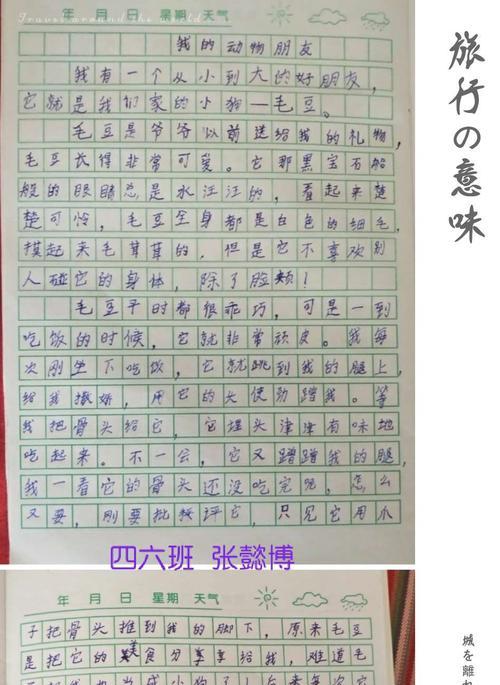 年 月 日 星期 天气
Travel around the world
我的动物朋友
我有一个从小到大的好朋友,
它就是我们家的小狗—毛豆。
毛豆是爷爷以前送给我的礼物,
毛豆长得非常可爱。它那黑宝石船
般的眼睛总是水汪汪的,看起来楚
楚可怜,毛豆全身都是白色的细毛,
摸起来毛茸茸的,但是它不喜欢别
人碰它的身体,除了脸颊!
毛豆平时都很乖巧,可是一到
吃饭的时候,它就非常顽皮。我每
次刚坐下吃饭,它就跳到我的腿上,
给我撒娇,用它的头使劲蹭我。等
我把骨头给它,它埋头津津有味地
吃起来。不一会,它又蹭蹭我的腿,
我一看它的骨头还没吃完呢,怎么
又要,刚要批评它,只见它用爪
四六班 张懿博
年 月 日 星期 天气
子把骨头推到我的脚下,原来毛豆
是把它的美食分享给我,难道毛
旅行の意味
城を離れ